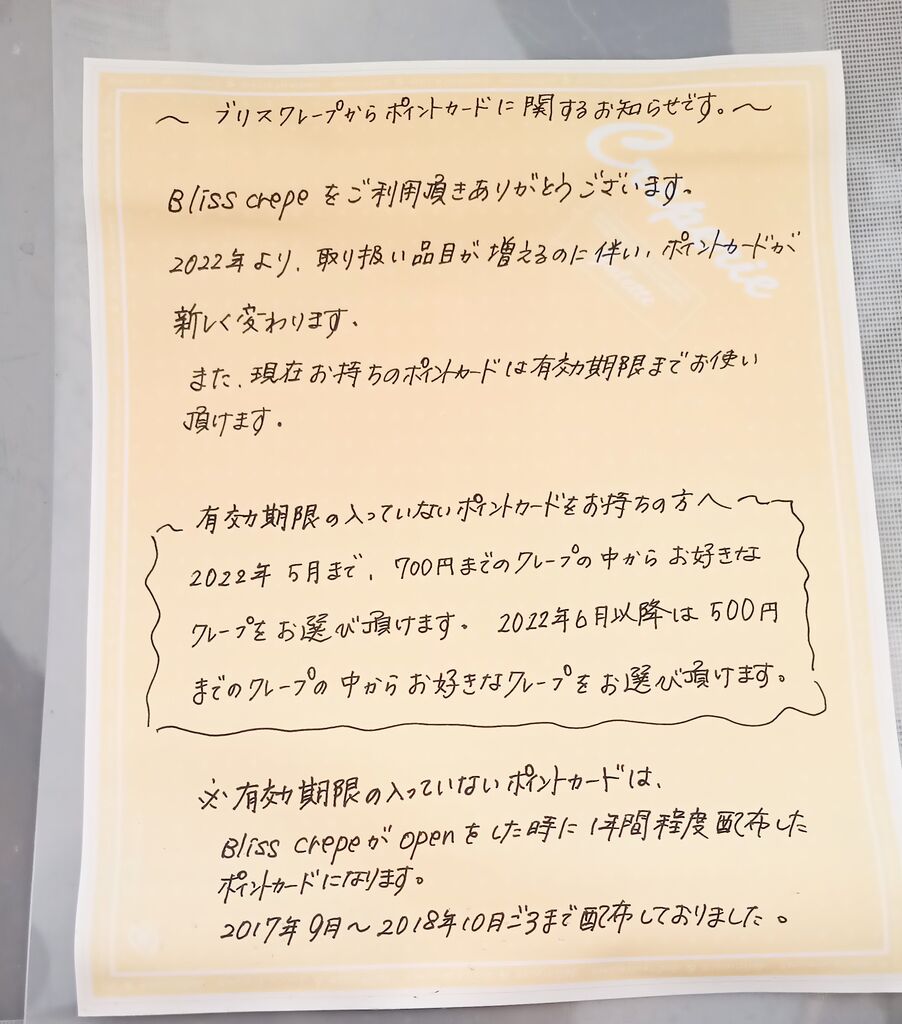 ～ ブリスクレープからポイントカードに関するお知らせです。～
Bliss crepe をご利用頂きありがとうございます。
2022年より、取り扱い品目が増えるのに伴い、ポイントカードが
新しく変わります。
また、現在お持ちのポイントカードは有効期限までお使い
頂けます。
～ 有効期限の入っていないポイントカードをお持ちの方へ ～
2022年 5月まで、700円までのクレープの中からお好きな
クレープをお選び頂けます。 2022年6月以降は500円
までのクレープの中からお好きなクレープをお選び頂けます。
※有効期限の入っていないポイントカードは、
Bliss crepeがopenをした時に1年間程度配布した
ポイントカードになります。
2017年9月～2018年10月ごろまで配布しておりました。